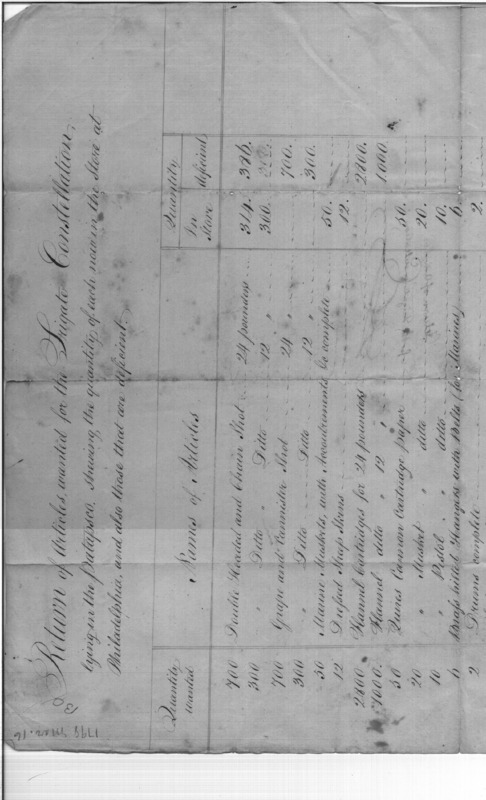 Return of Articles, wanted for the Frigate Constellation,
lying in the Patapsco, shewing the quantity of each now in the Store at
Philadelphia, and also those that are deficient.
Quantity wanted | Names of Articles | Quantity In Store | deficient
700 Double Headed and Chain Shot 24 pounders 314. 386.
300 " Ditto " Ditto 12 " 300.
700 Grape and Cannister Shot 24 " 700.
300 " Ditto Ditto 12 " 300.
50 Marine Muskets, with Accoutrements &c complete 50.
12 12.
2800 Flannel Cartridges for 24 pounders 2800.
1000. Flannel ditto " 12 " 1000
50 Cannon Cartridge paper 50.
20 " Musket " ditto 20.
10 " Pistol " ditto 10.
6 Brass hilted Hangers with Belts (for Marines) 6.
2 Drums complete 2.
1798 Mar. 16